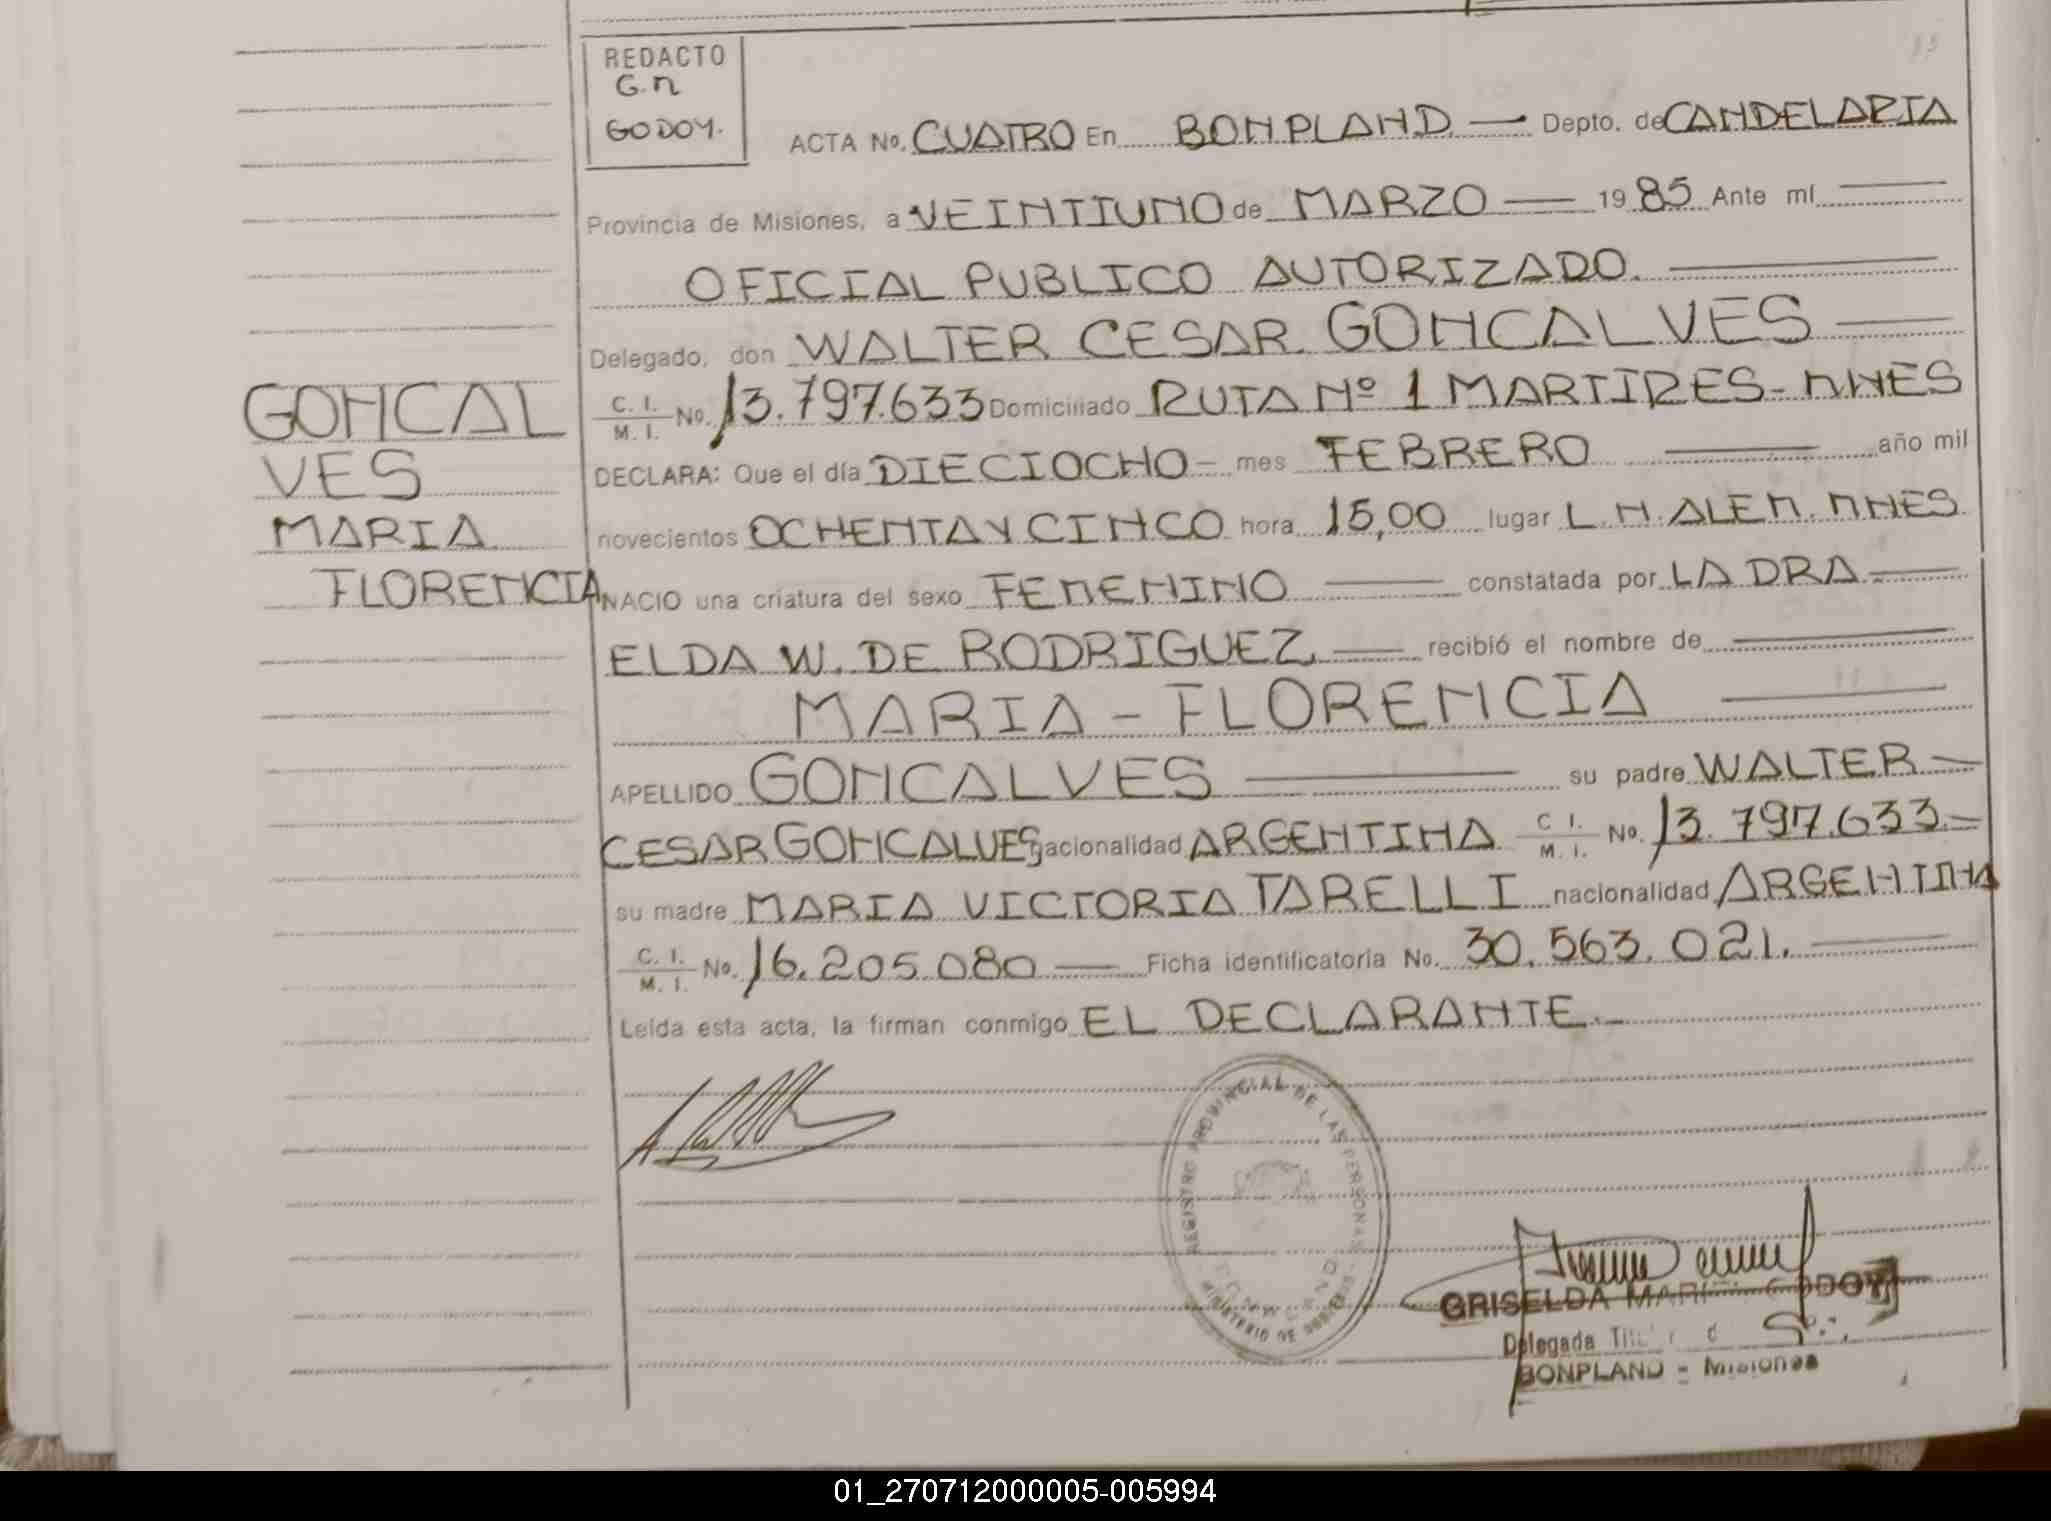 REDACTO
G.M
GODOY.
ACTA No. CUATRO En BONPLAND. — Depto. de CANDELARIA
Provincia de Misiones, a VEINTIUNO de MARZO — 1985 Ante mí
OFICIAL PUBLICO AUTORIZADO.
Delegado, don WALTER CESAR GONCALVES
C. I. / M. I. No. 13.797.633 Domiciliado RUTA Nº 1 MARTIRES - MNES
DECLARA: Que el día DIECIOCHO — mes FEBRERO — año mil
novecientos OCHENTA Y CINCO hora 15,00 lugar L.N. ALEM. MNES
NACIO una criatura del sexo FEMENINO — constatada por LA DRA
ELDA W. DE RODRIGUEZ — recibió el nombre de
MARIA - FLORENCIA
APELLIDO GONCALVES — su padre WALTER
CESAR GONCALVES nacionalidad ARGENTINA C. I. / M. I. No. 13.797.633.—
su madre MARIA VICTORIA TARELLI nacionalidad ARGENTINA
C. I. / M. I. No. 16.205.080 — Ficha identificatoria No. 30.563.021.
Leída esta acta, la firman conmigo EL DECLARANTE.
GONCAL
VES
MARIA
FLORENCIA
REGISTRO PROVINCIAL DE LAS PERSONAS
MINISTERIO DE
GRISELDA GODOY
Delegada
BONPLAND - Misiones
01_270712000005-005994